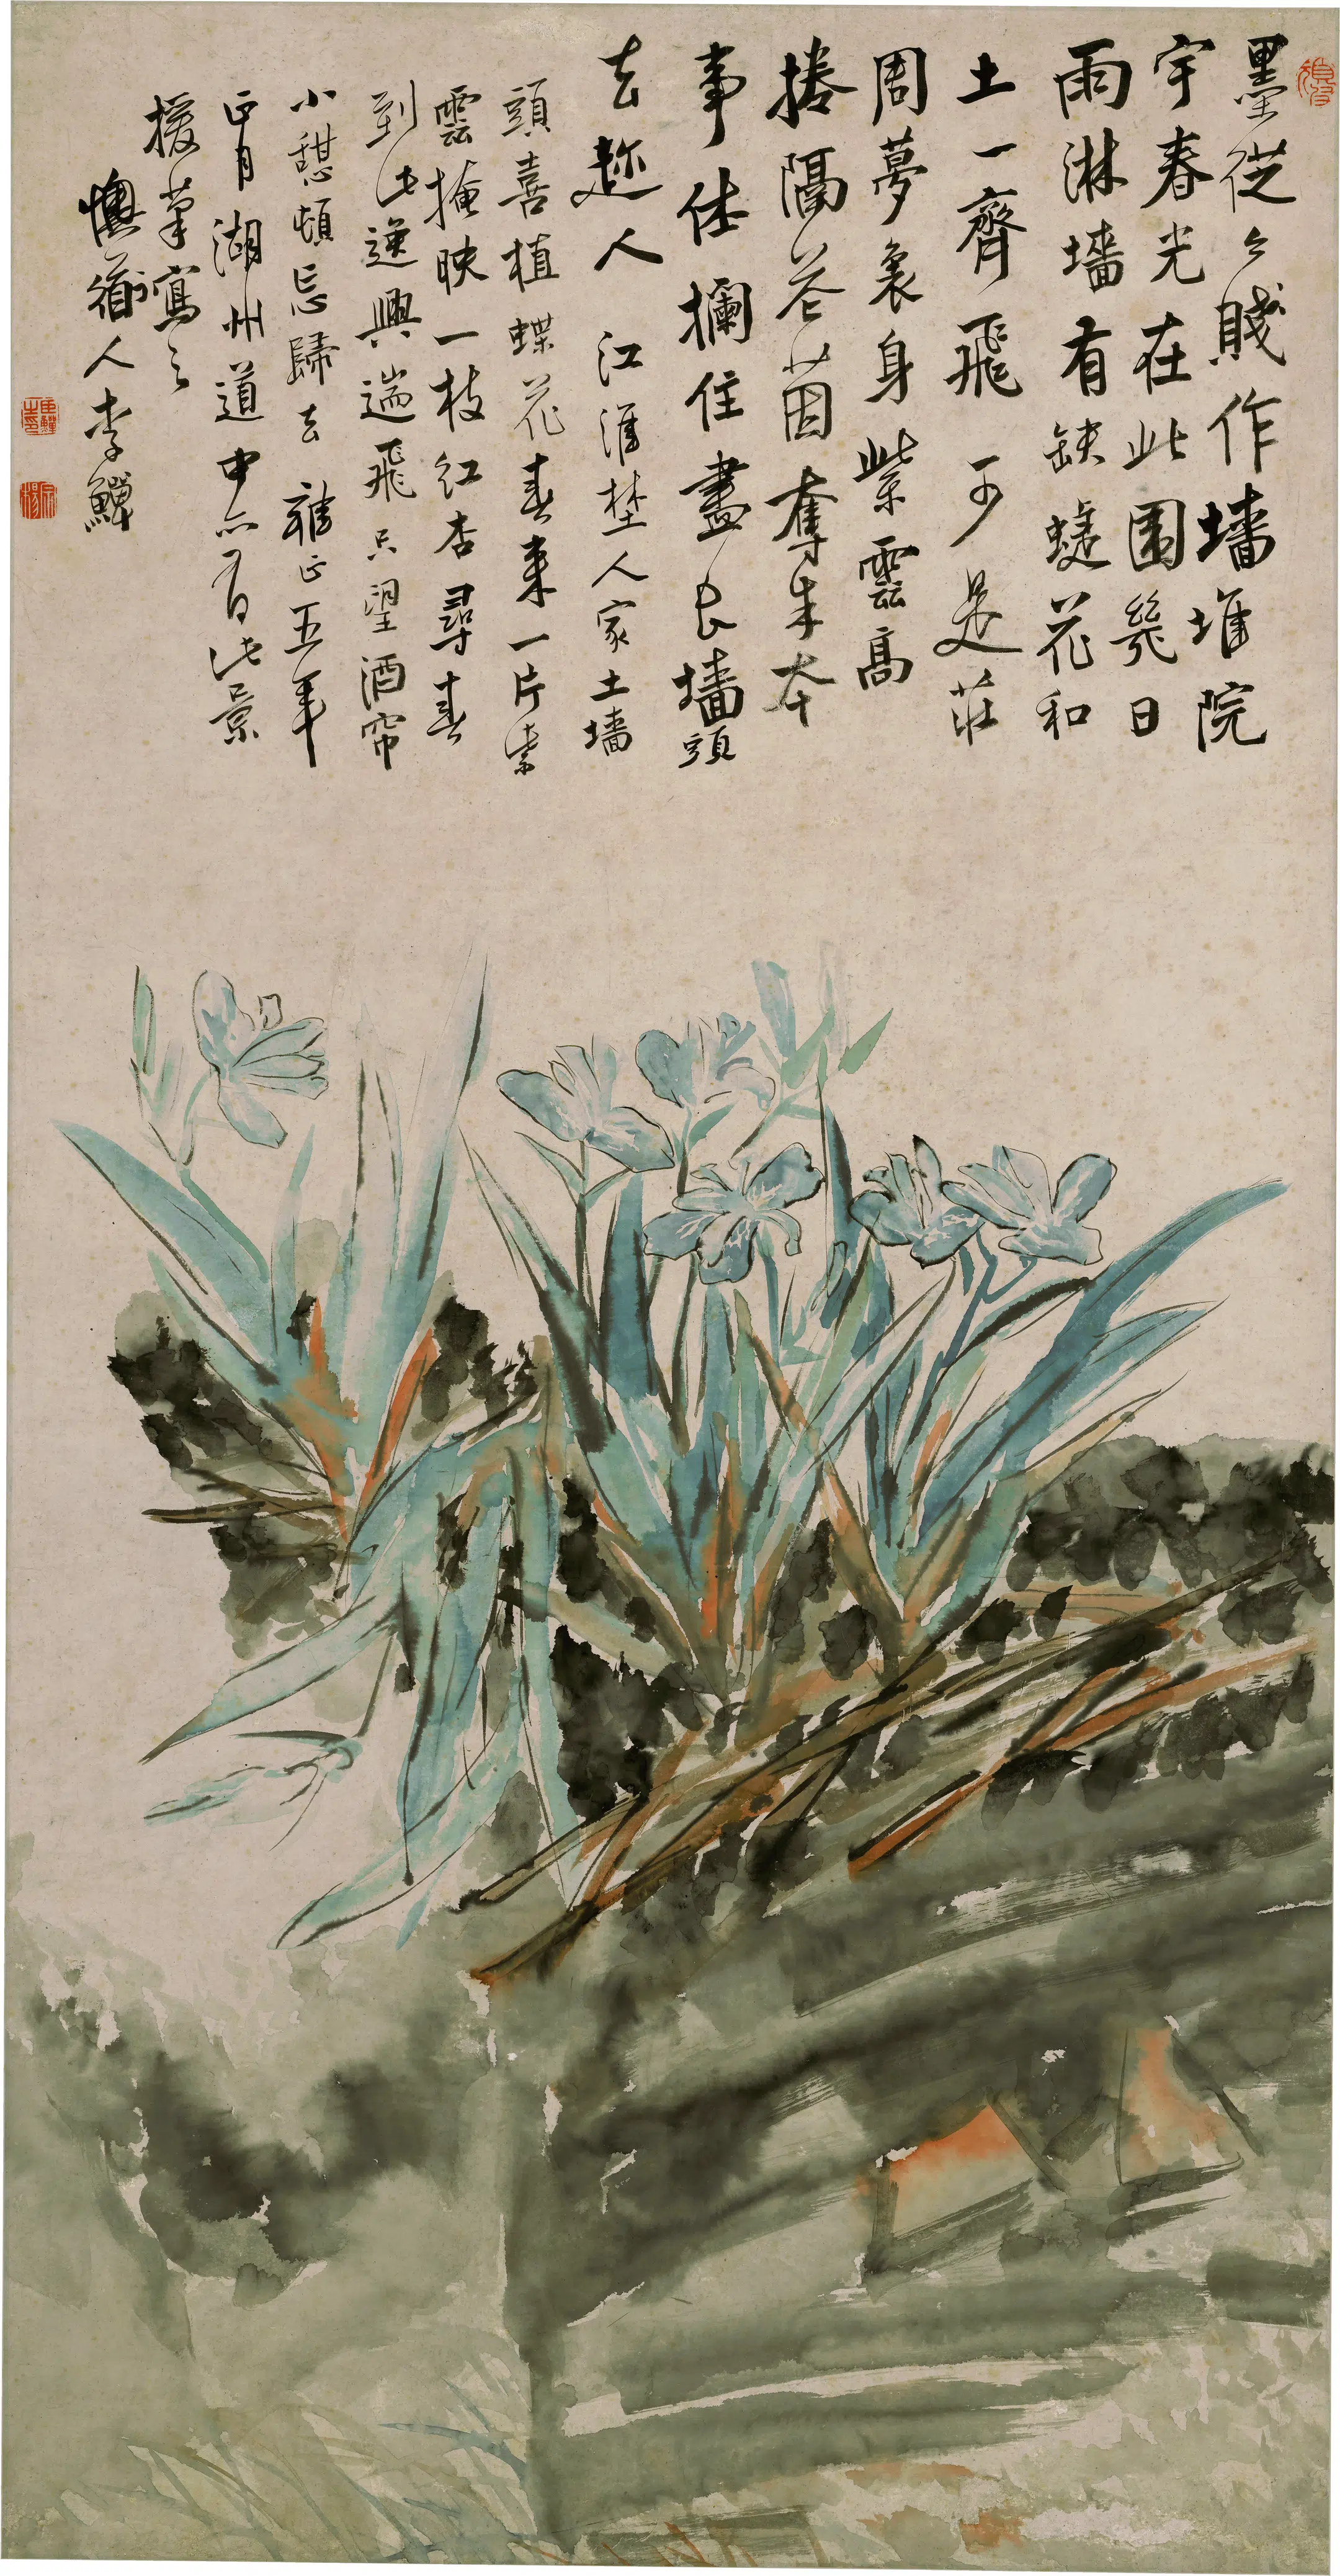 墨從々賤作墻堆院
宇春光在此圍幾日
雨淋墻有缺蝶花和
土一齊飛 可是莊
周夢裏身紫雲高
捲隔花茵奪朱本
事休攔住盡出墻頭
去趂人 江淮埜人家土墻
頭喜植蝶花春來一片紫
雲掩映一枝紅杏尋春
到此逸興遄飛只望酒帘
小憇頓忘歸去 雍正五年
正月湖州道中亦有此景
援筆寫之
懊道人李鱓